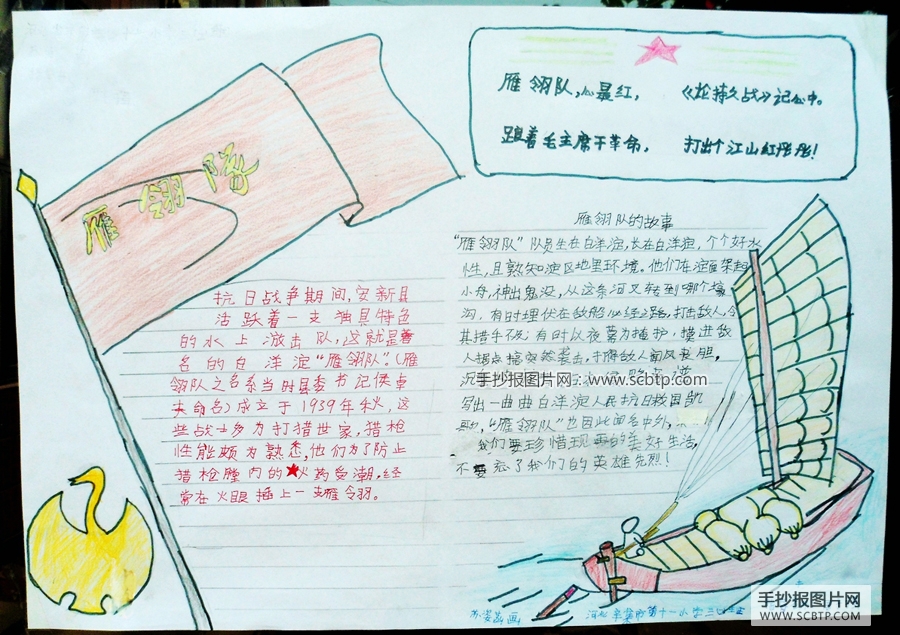 雁翎隊
雁翎队,心最红, 《论持久战》记心中。
跟着毛主席干革命, 打出个江山红彤彤!
抗日战争期间,安新县
活跃着一支独具特色
的水上游击队,这就是著
名的白洋淀“雁翎队”。(雁
翎队之名系当时县委书记侯卓
夫命名)成立于1939年秋,这
些战士多为打猎世家,猎枪
性能颇为熟悉,他们为了防止
猎枪膛内的火药受潮,经
常在火眼插上一支雁翎。
雁翎队的故事
“雁翎队”队员生在白洋淀,长在白洋淀,个个好水
性,且熟知淀区地里环境。他们在淀面架起
小舟,神出鬼没,从这条河叉转到哪个壕
沟,有时埋伏在敌船必经之路,打击敌人,令
其措手不及;有时以夜雾为掩护,摸进敌
人据点搞突然袭击,打得敌人闻风丧胆,
沉
手抄报图片网:www.scbtp.com
写出一曲曲白洋淀人民抗日救国凯
歌,“雁翎队”也因此闻名中外,
我们要珍惜现在的美好生活,
不要忘了我们的英雄先烈!
画
第十一小学
手抄报图片网
WWW.SCBTP.COM